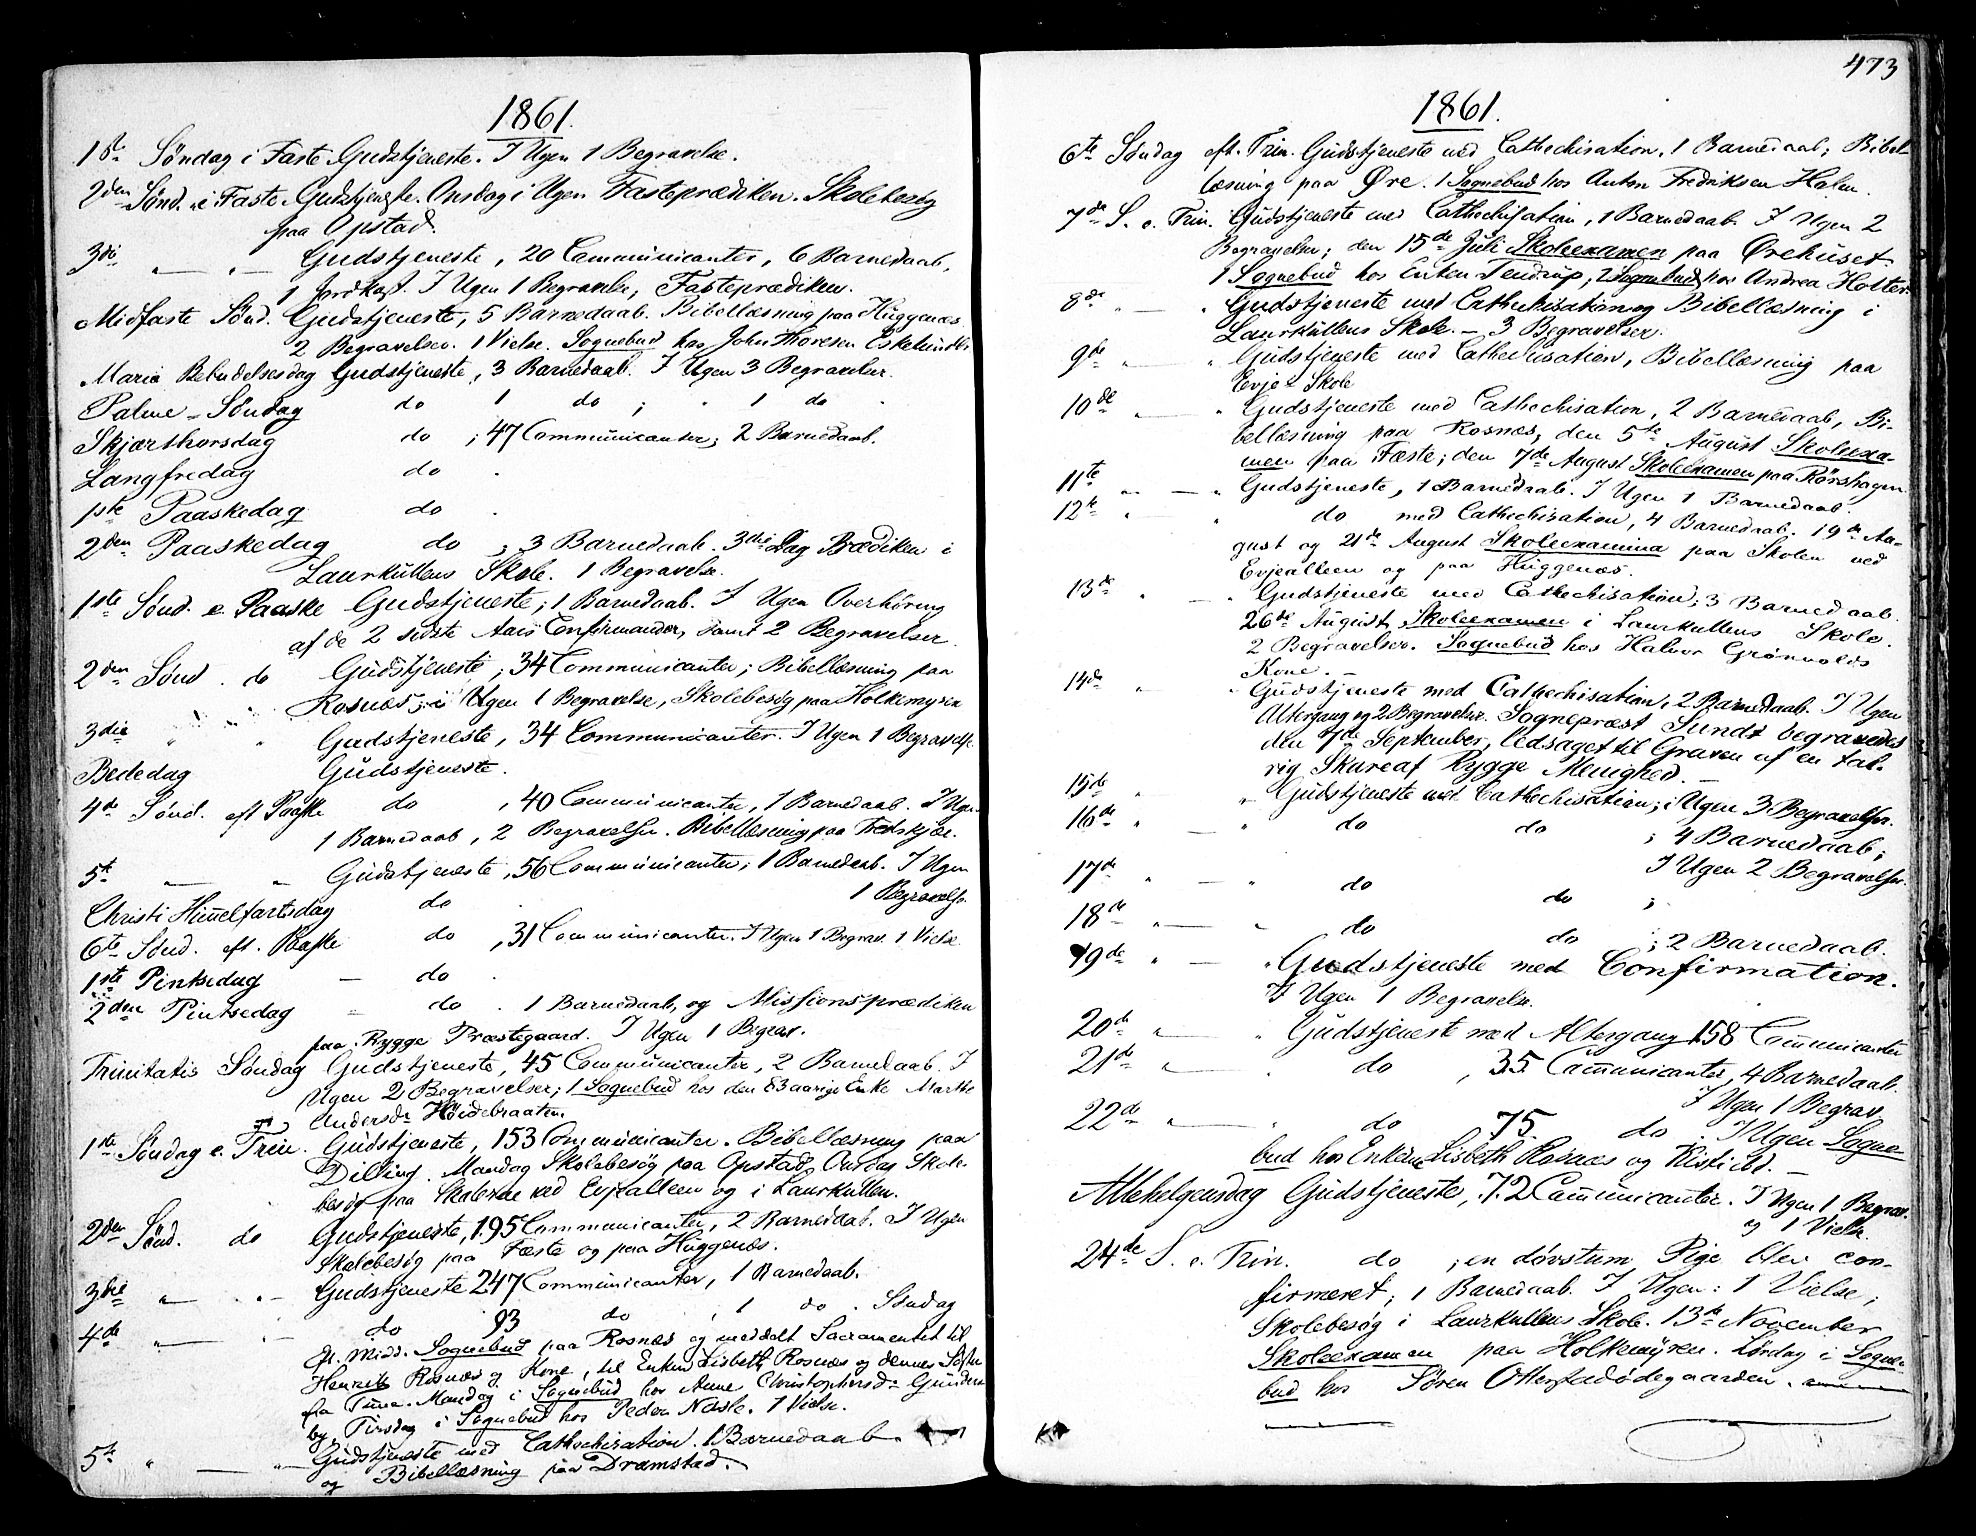 1861.
1ste Søndag i Faste Gudstjeneste. I Ugen 1 Begravelse.
2den Sønd. i Faste Gudstjeneste. Onsdag i Ugen Fasteprædiken. Skolebesøg
paa Opstad.
3die " — " — Gudstjeneste, 20 Communicanter, 6 Barnedaab,
1 Jordkast. I Ugen 1 Begravelse, Fasteprædiken.
Midfaste Sønd. Gudstjeneste, 5 Barnedaab. Bibellæsning paa Huggenæs
2 Begravelser. 1 Vielse. Sognebud hos John Thoresen
Maria Bebudelsesdag Gudstjeneste, 3 Barnedaab. I Ugen 3 Begravelser.
Palme-Søndag do 1 do ; " 1 do
Skjærthorsdag do ; 47 Communicanter; 2 Barnedaab.
Langfredag do .
1ste Paaskedag do .
2den Paaskedag do ; 3 Barnedaab. 3die Dag Prædiken i
Laurkullens Skole. 1 Begravelse.
1ste Sønd. e. Paaske Gudstjeneste; 1 Barnedaab. I Ugen Overhøring
af de 2 sidste Aars Confirmander, samt 2 Begravelser.
2den Sønd. do Gudstjeneste; 34 Communicanter; Bibellæsning paa
Rosnæs; i Ugen 1 Begravelse, Skolebesøg paa Holkemyren
3die " " Gudstjeneste, 34 Communicanter. I Ugen 1 Begravelse.
Bededag Gudstjeneste.
4de Sønd. eft Paaske do , 40 Communicanter, 1 Barnedaab. I Ugen
1 Barnedaab, 2 Begravelser. Bibellæsning paa
5te — " Gudstjeneste, 56 Communicanter; 1 Barnedaab. I Ugen
1 Begravelse.
Christi Himmelfartsdag do .
6te Sønd. eft. Paaske do , 31 Communicanter. I Ugen 1 Begrav. 1 Vielse
1ste Pintsedag — do .
2den Pintsedag " do . 1 Barnedaab, og Missionsprædiken
paa Rygge Præstegaard. I Ugen 1 Begrav.
Trinitatis Søndag Gudstjeneste, 45 Communicanter, 2 Barnedaab. I
Ugen 2 Begravelser; 1 Sognebud hos den 83 aarige Enke Marthe
Andersdr Høidebraaten.
1ste Søndag e. Trin. Gudstjeneste, 153 Communicanter. Bibellæsning paa
Dilling. Mandag Skolebesøg paa Opstad, Onsdag Skole-
besøg paa Skolerne ved Evjealleen og i Laurkullen.
2den Sønd. do Gudstjeneste, 195 Communicanter, 2 Barnedaab. I Ugen
Skolebesøg paa Fæste og paa Huggenæs.
3die " — " — Gudstjeneste 247 Communicanter, 1 Barnedaab.
4de " — " — do 93 do , 1 do . Søndag
Ef. Midd. Sognebud paa Rosnæs og meddelt Sacramentet til
Henrik Rosnæs og Kone, til Enken Lisbeth Rosnæs og dennes Søster
fra Mandag i Sognebud hos Anne Christophersdr
by, Tirsdag i Sognebud hos Peder Næsle. 1 Vielse.
5te " — " Gudstjeneste med Cathechisation. 1 Barnedaab
og Bibellæsning paa Dramstad.
473
1861.
6te Søndag eft. Trin. Gudstjeneste med Cathechisation. 1 Barnedaab; Bibel-
læsning paa Øre. 1 Sognebud hos Anton Fredriksen Halm.
7de S. e. Trin. Gudstjeneste med Cathechisation, 1 Barnedaab. I Ugen 2
Begravelser; den 15de Juli Skoleexamen paa Ørehuset
1 Sognebud hos Enken Tendrup, 2 Sognebud hos Andrea Holter.
8de " — " Gudstjeneste med Cathechisation og Bibellæsning i
Laurkullens Skole. — 3 Begravelser.
9de " — " Gudstjeneste med Cathechisation, Bibellæsning paa
Evje Skole
10de " — " Gudstjeneste med Cathechisation, 2 Barnedaab, Bi-
bellæsning paa Rosnæs, den 5te August Skoleexa-
men paa Fæste; den 7de August Skoleexamen paa Rørshagen
11te " — " Gudstjeneste, 1 Barnedaab. I Ugen 1 Barnedaab.
12te " " do med Cathechisation, 4 Barnedaab. 19de Au-
gust og 21de August Skoleexamina paa Skolen ved
Evjealleen og paa Huggenæs.
13de " — " Gudstjeneste med Cathechisation; 3 Barnedaab.
26de August Skoleexamen i Laurkullens Skole.
2 Begravelser. Sognebud hos Halvor Grønvolds
Kone. —
14de " " Gudstjeneste med Cathechisation, 2 Barnedaab. I Ugen
Altergang og 2 Begravelser. Sognepræst Sundt begravedes
den 7de September, ledsaget til Graven af en tal-
rig Skare af Rygge Menighed. —
15de " " Gudstjeneste med Cathechisation; i Ugen 3 Begravelser.
16de " — " do do ; 4 Barnedaab;
I Ugen 2 Begravelser.
17de " — " do do ;
18de " — " do do ; 2 Barnedaab.
19de " — " Gudstjeneste med Confirmation.
I Ugen 1 Begravelse.
20de " — " Gudstjeneste med Altergang 158 Communicanter
21de " — " do , 35 Communicanter, 4 Barnedaab.
I Ugen 1 Begrav.
22de " — " do 75 do . I Ugen Sogne-
bud hos Enkerne Lisbeth Rosnæs og
Allehelgensdag Gudstjeneste, 72 Communicanter. I Ugen 1 Begrav.
og 1 Vielse.
24de S. e. Trin. do ; en døvstum Pige blev con-
firmeret; 1 Barnedaab. I Ugen: 1 Vielse;
Skolebesøg i Laurkullens Skole. 13de November
Skoleexamen paa Holkemyren. Lørdag i Sogne-
bud hos Søren Otterstadødegaarden.